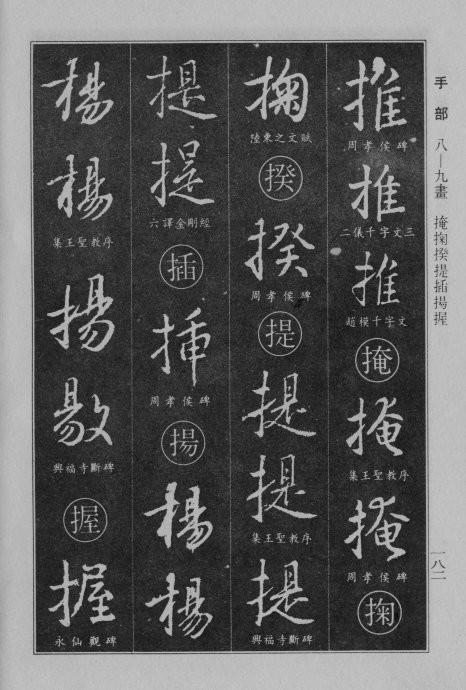 手部 八—九畫 掩掬揆提插揚握
一八二
推
周孝侯碑
推
二儀千字文三
推
趙模千字文
掩
掩
集王聖教序
掩
周孝侯碑
掬
掬
陸柬之文賦
揆
揆
周孝侯碑
提
提
提
集王聖教序
提
興福寺斷碑
提
提
六譯金剛經
插
插
周孝侯碑
揚
楊
楊
楊
楊
集王聖教序
揚
敭
興福寺斷碑
握
握
永仙觀碑